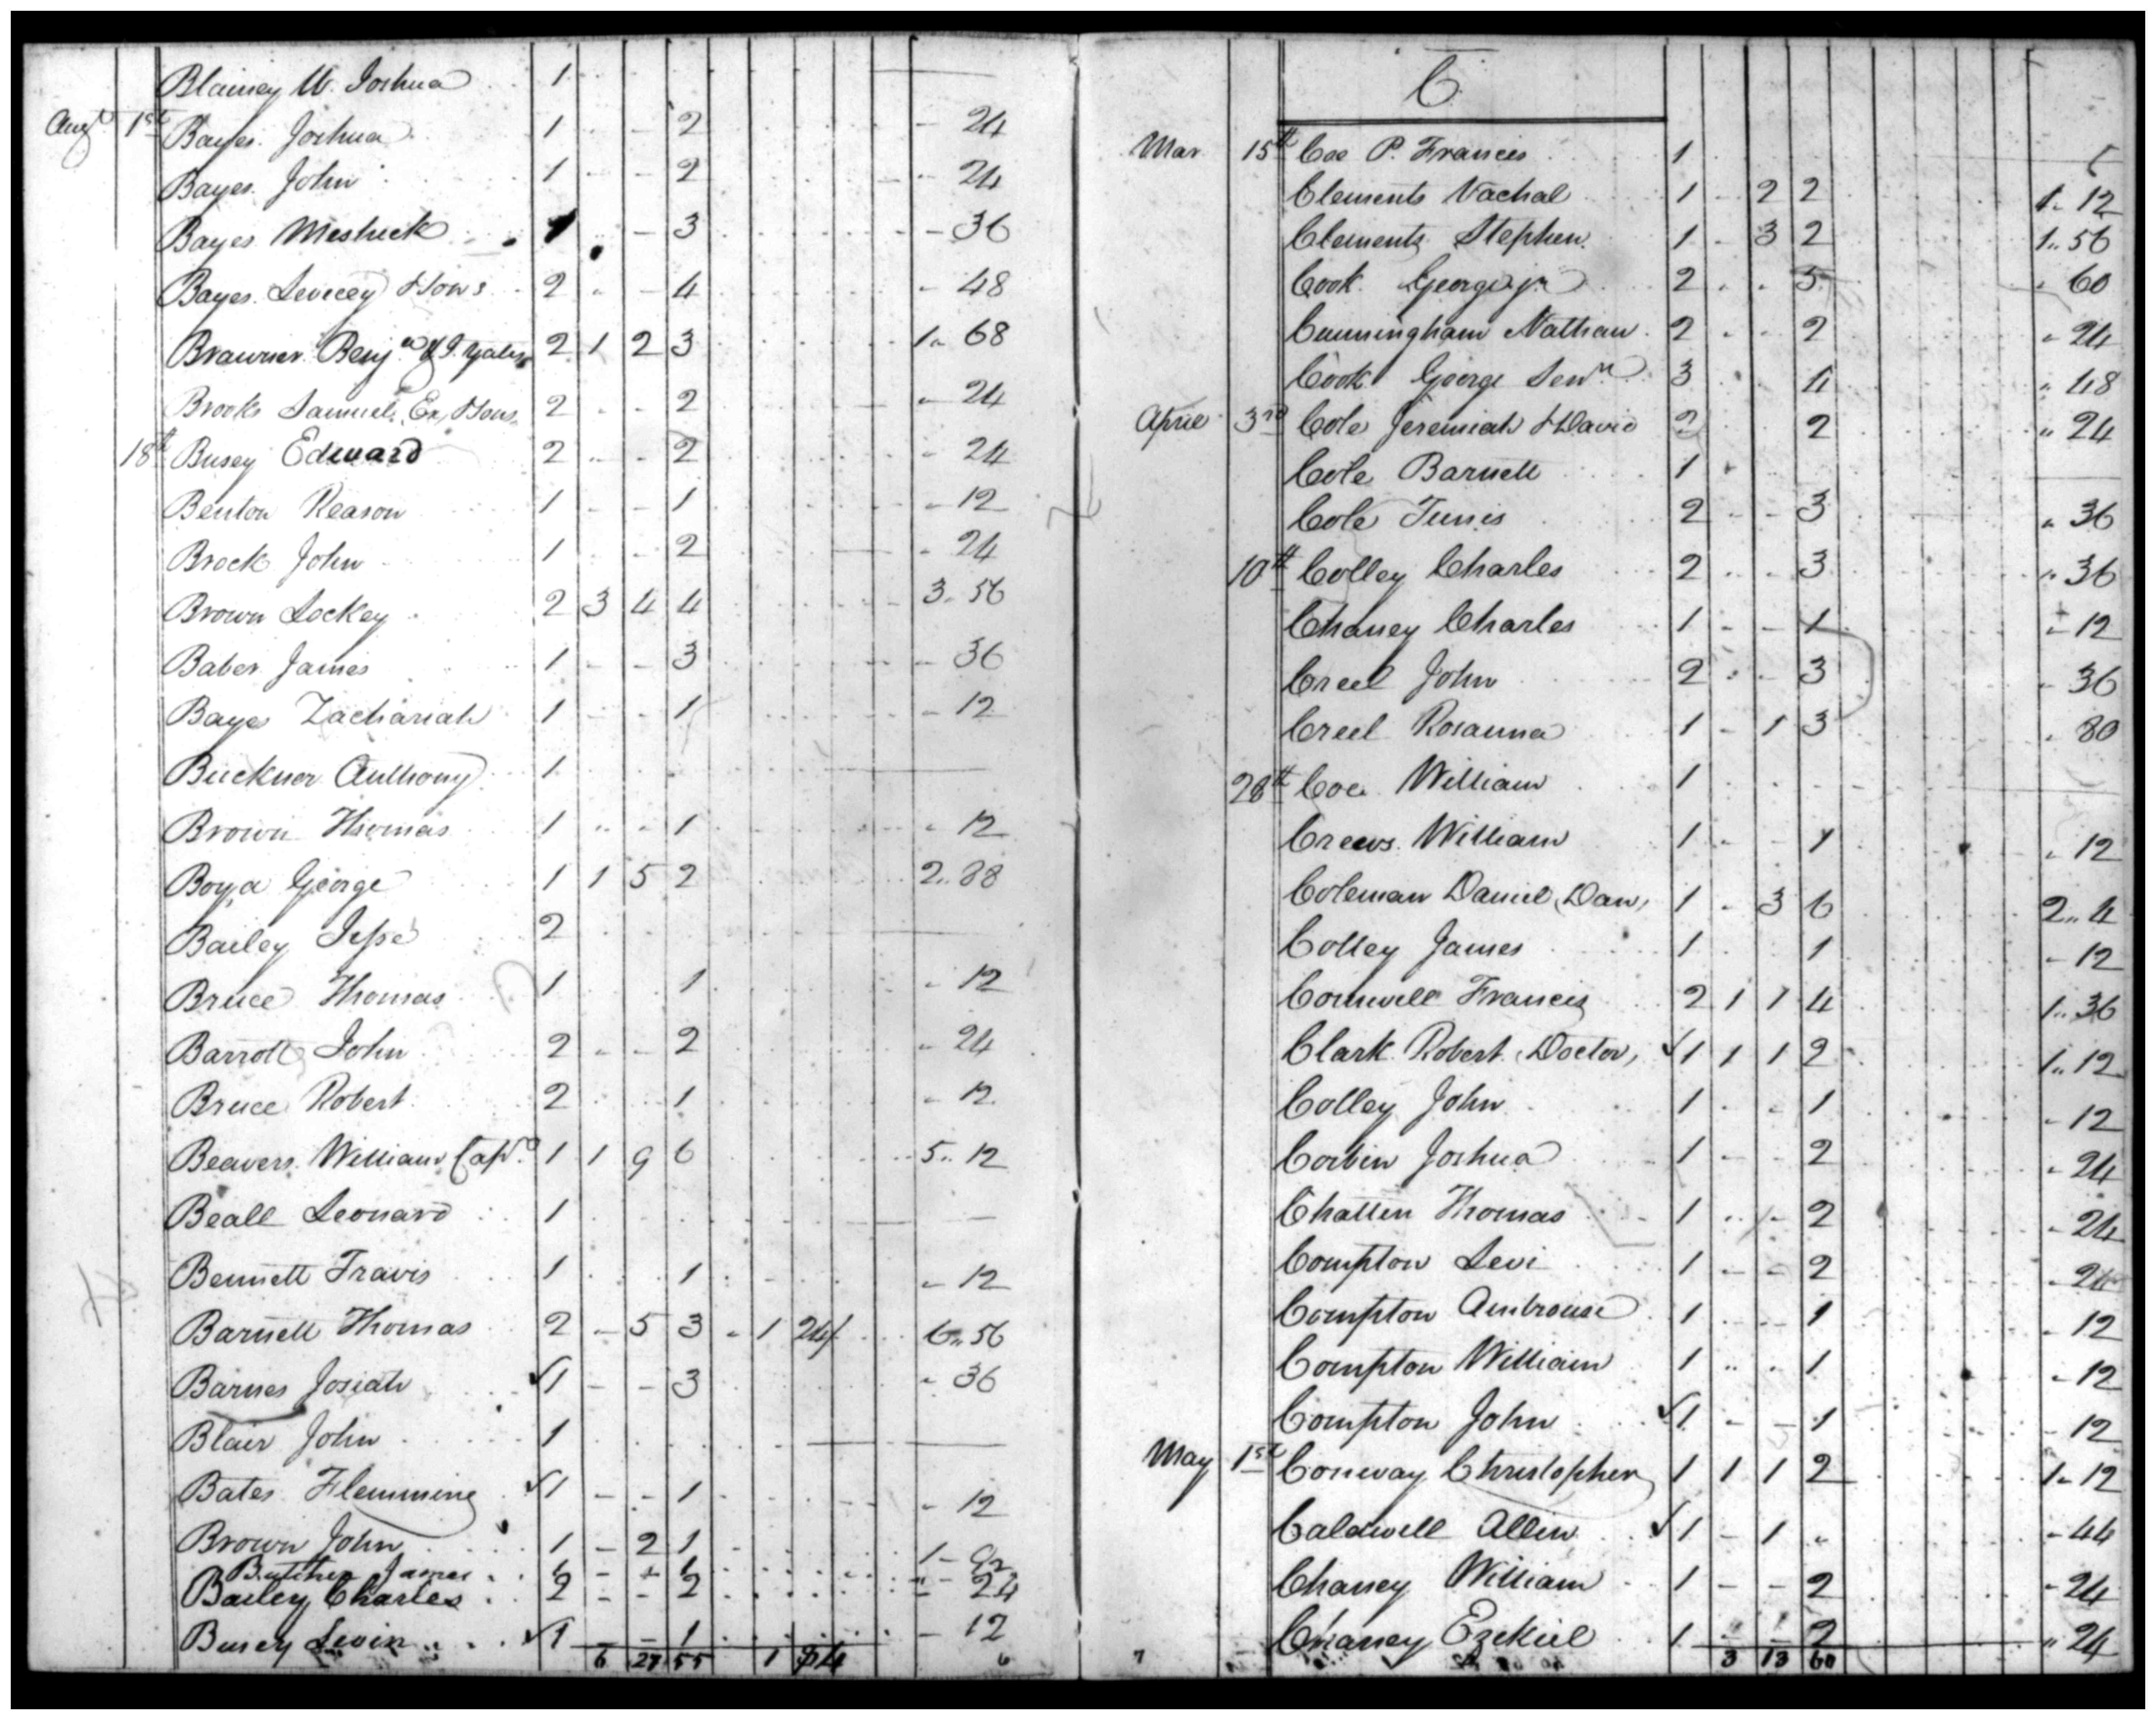 Blainey W. Joshua 1
Augt 1st Bayes. Joshua 1 - - 2 - 24
Bayes. John 1 - - 2 - 24
Bayes Mesheck 1 - - 3 - 36
Bayes. Levicey & Sons 2 - - 4 - 48
Brawner Benjn & J. Yates 2 1 2 3 1 " 68
Brooks Samuel, Ex, & Sons, 2 - - 2 - 24
18th Busey Edward 2 - - 2 - 24
Benton Reason 1 - - 1 - 12
Brock John 1 - - 2 - 24
Brown Lockey 2 3 4 4 3 " 56
Baber James 1 - - 3 - 36
Baye Zachariah 1 - - 1 - 12
Buckner Anthony 1
Brown Thomas 1 - - 1 " 12
Boyd George 1 1 5 2 2 " 88
Bailey Jesse 2
Bruce Thomas 1 1 - 12
Barrott John 2 - - 2 - 24
Bruce Robert 2 1 - 12
Beavers William Capt. 1 1 9 6 5 " 12
Beall Leonard 1
Bennett Travis 1 1 - 12
Barnett Thomas 2 - 5 3 - 1 24/ 6 " 56
Barnes Josiah √1 - - 3 " 36
Blair John 1
Bates Flemming √1 - - 1 - 12
Brown John 1 - 2 1 1 -
Butcher James
Bailey Charles 2 - - 2 - 24
Busey Levin √1 - 1 - 12
6 27 55 1 24
C
Mar 15th Coe P. Francis 1
Clements Vachal 1 - 2 2 1 " 12
Clements Stephen 1 - 3 2 1 " 56
Cook George jr 2 - - 5 " 60
Cunningham Nathan 2 - - 2 " 24
Cook George Senr 3 4 " 48
April 3rd Cole Jeremiah & David 2 2 " 24
Cole Barnett 1
Cole Tunis 2 - - 3 " 36
10th Colley Charles 2 - - 3 " 36
Chaney Charles 1 - - 1 - 12
Creel John 2 - - 3 - 36
Creel Rosanna 1 - 1 3 " 80
28th Coe William 1
Crews William 1 - - 1 " 12
Coleman Daniel (Dan, 1 - 3 6 2 " 4
Colley James 1 1 - 12
Cornwell Francis 2 1 1 4 1 " 36
Clark Robert (Doctor, √1 1 1 2 1 " 12
Colley John 1 - - 1 - 12
Corbin Joshua 1 - - 2 " 24
Chatten Thomas 1 - - 2 - 24
Compton Levi 1 - - 2 - 24
Compton Ambrouse 1 - - 1 - 12
Compton William 1 " - 1 - 12
Compton John √1 - - 1 - 12
May 1st Conway Christopher 1 1 1 2 1 - 12
Caldwell Allin √1 - 1 " - 44
Chaney William 1 - - 2 - 24
Chaney Ezekiel 1 - - 2 " 24
3 13 60